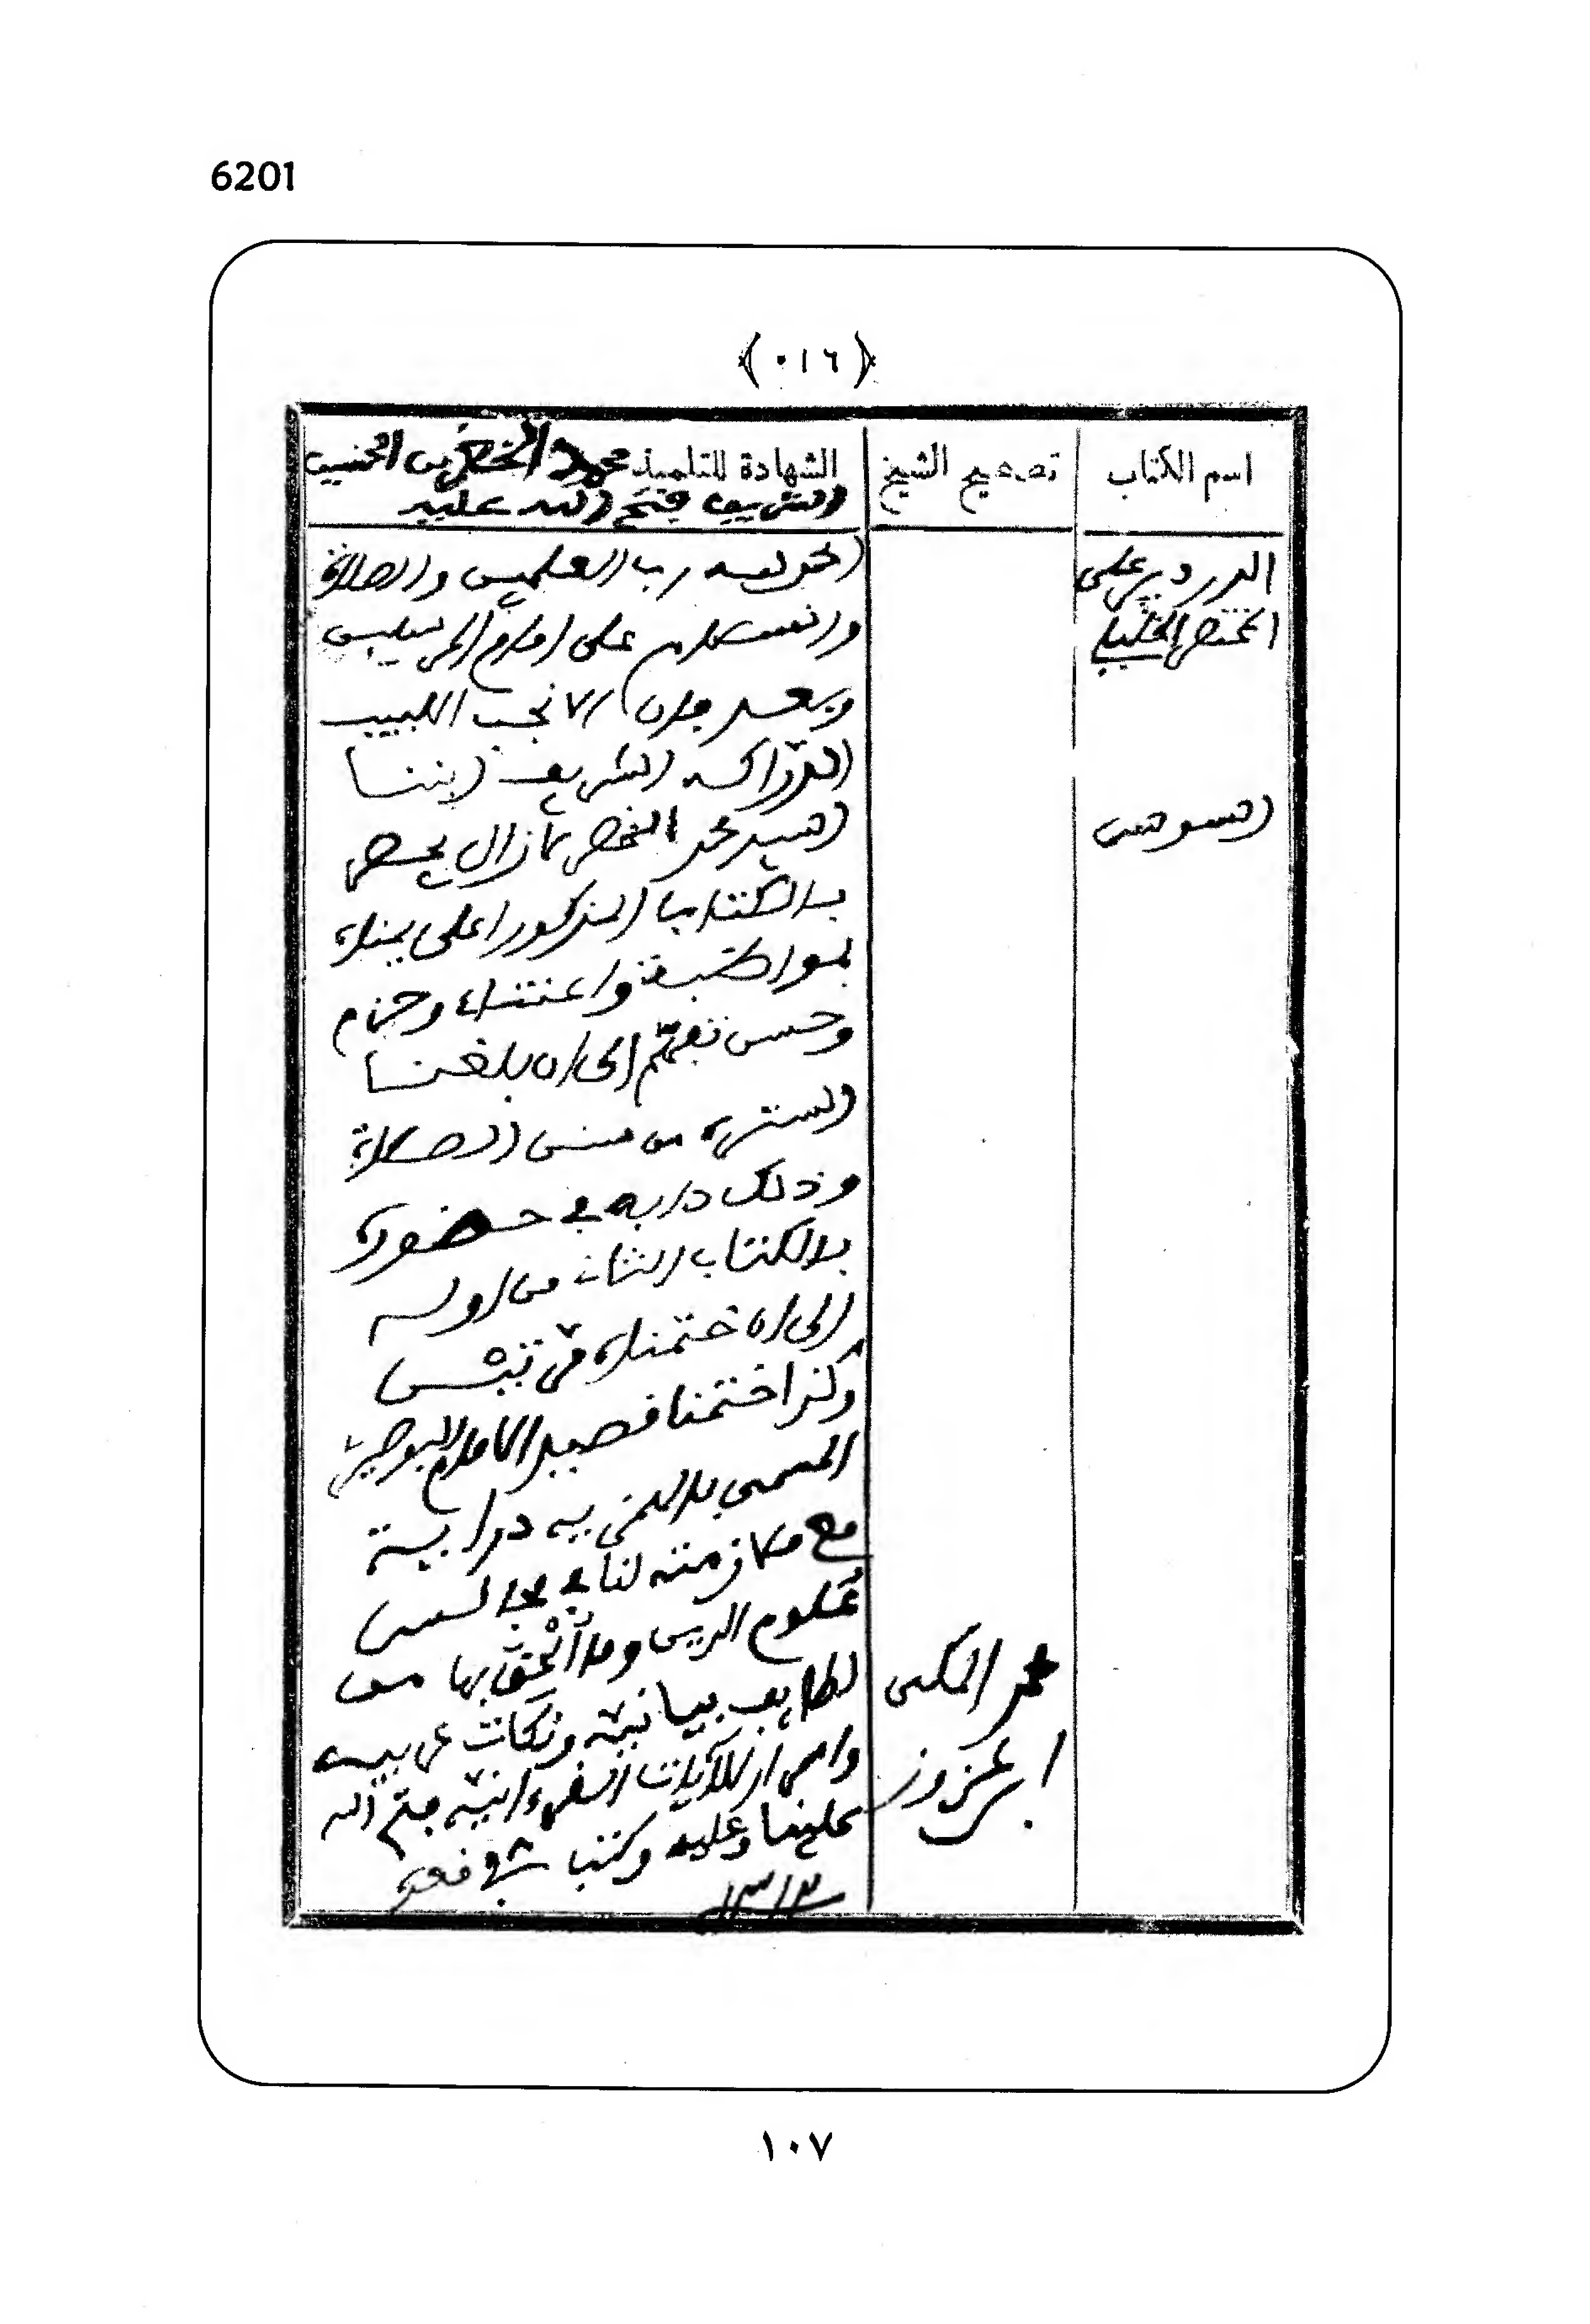 6201
(٠١٦)
اسم الكتاب
تصحيح الشيخ
الشهادة للتلميذ محمد الخضر بن الحسين
الشريف فتح الله عليه
الدردير على
المختصر الخليلي
السنوسي
الحمد لله رب العلمين والصلاة
والسلام على امام المرسلين
وبعد فان الانجب اللبيب
الدراكه الشريف ابننا
السيد محمد الخضر مازال يحضر
بالكتاب المذكور اعلى يمناه
بمواظبة واعتناء وحزم
وحسن تفهّم الى ان بلغنا
السترة من سنن الصلاة
وذلك دابه في حضوره
بالكتاب الثان من اوله
الى ان ختمناه
وكذا ختمنا قصيد الامام البوصيري
المسمى بالهمزيه دراية
مع ملازمته لنا في مجالس
علوم الدين وما ألحق بها من
لطايف بيانية ونكات عربيه
واسرار للآيات القرءانية فتح الله
علينا وعليه وكتب في قعدة
١٣١٣
محمد المكي
ابن عزوز
١٠٧